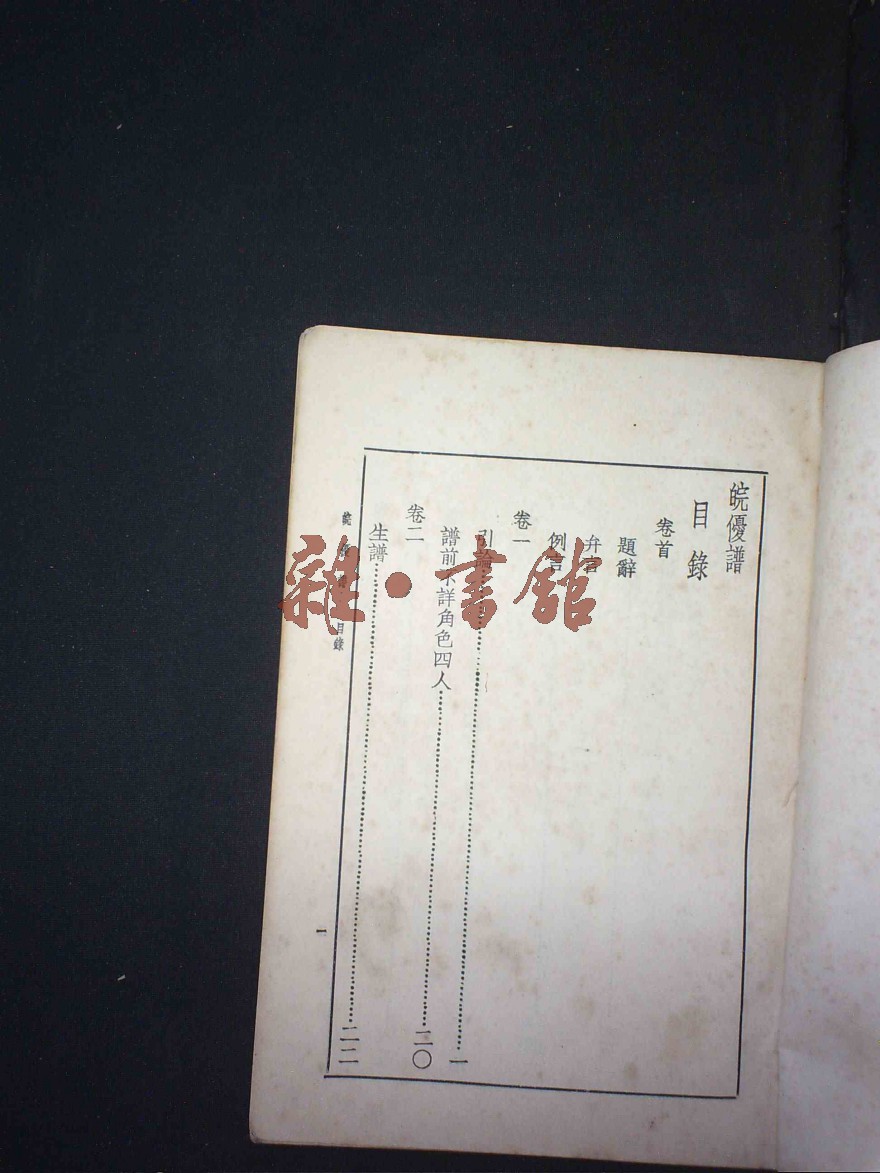 皖優譜
目錄
卷首
題辭
弁言
例言
卷一
引論 一
譜前不詳角色四人 二〇
卷二
生譜 二二
皖優譜 目錄
一
雜·書館